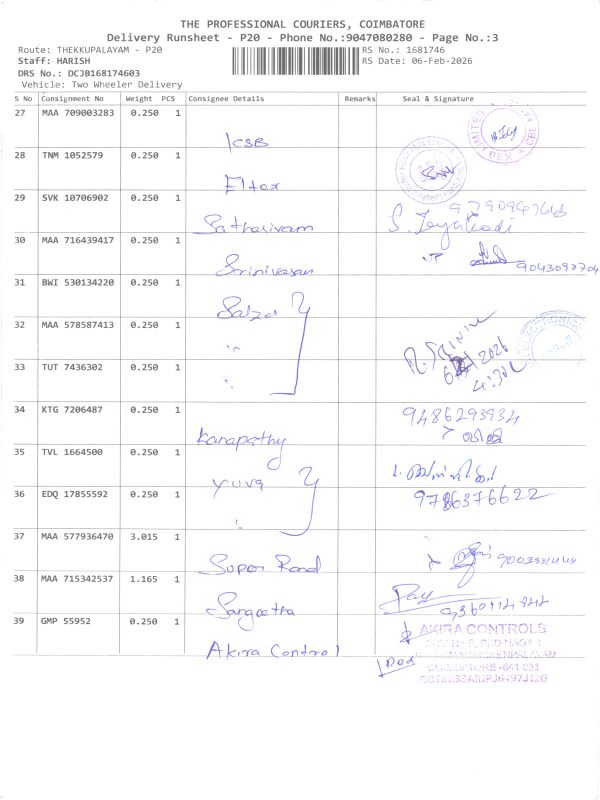 THE PROFESSIONAL COURIERS, COIMBATORE
Delivery Runsheet - P20 - Phone No.:9047080280 - Page No.:3
Route: THEKKUPALAYAM - P20
RS No.: 1681746
Staff: HARISH
RS Date: 06-Feb-2026
DRS No.: DCJB168174603
Vehicle: Two Wheeler Delivery
S No Consignment No Weight PCS Consignee Details Remarks Seal & Signature
27 MAA 709003283 0.250 1 KSB
28 TNM 1052579 0.250 1 Eltex
29 SVK 10706902 0.250 1 Sathasivam
30 MAA 716439417 0.250 1 Srinivasan 9043090704
31 BWI 530134220 0.250 1 Salzer
32 MAA 578587413 0.250 1 "
33 TUT 7436302 0.250 1 " 2026 4:30
34 KTG 7206487 0.250 1 Kanapathy 9486293934
35 TVL 1664500 0.250 1 yuva
36 EDQ 17855592 0.250 1 " 9786376622
37 MAA 577936470 3.015 1 Super Road
38 MAA 715342537 1.165 1 Sangeetha
39 GMP 55952 0.250 1 Akira Control
AKIRA CONTROLS
COIMBATORE -641 031